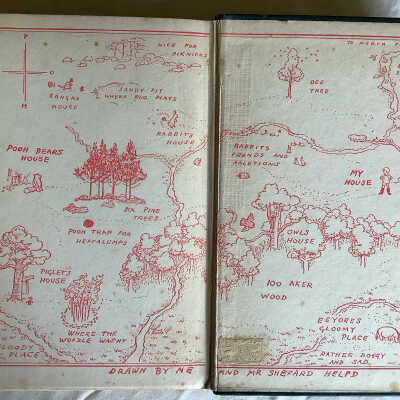 P
O
H
NICE FOR
PIKNICKS
KANGAS
HOUSE
SANDY PIT
WHERE ROO PLAYS
RABBITS
HOUSE
POOH BEARS
HOUSE
SIX PINE
TREES
POOH TRAP FOR
HEFFALUMPS
PIGLETS
HOUSE
WHERE THE
WOOZLE WASNT
PLACE
DRAWN BY ME
TO NORTH
BEE
TREE
RABBITS
FRENDS AND
RALETIONS
MY
HOUSE
OWLS
HOUSE
100 AKER
WOOD
EEYORES
GLOOMY
PLACE
RATHER BOGGY
AND SAD
AND MR SHEPARD HELPD